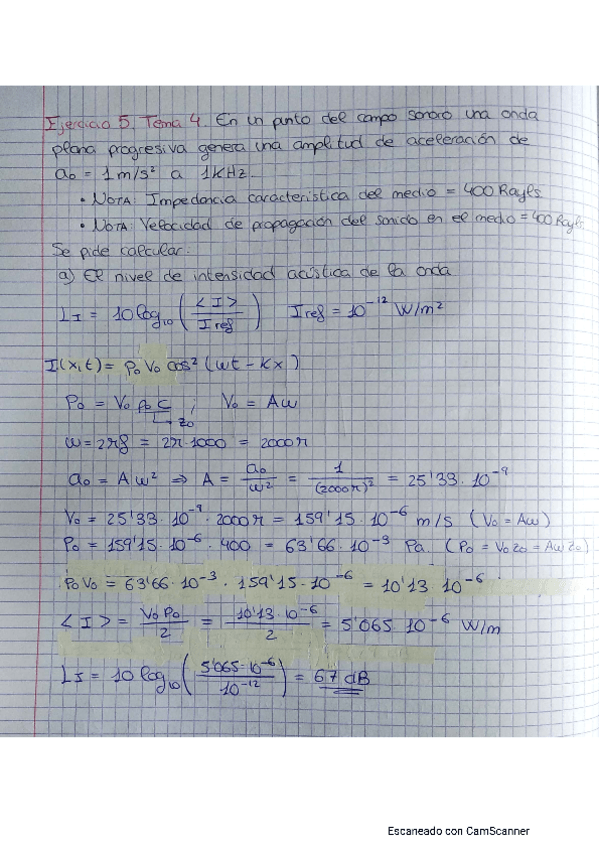 Ejercicio 5. Tema 4. En un punto del campo sonoro una onda
plana progresiva genera una amplitud de aceleración de
a₀ = 1 m/s² a 1KHz.
• NOTA: Impedancia característica del medio = 400 Rayls
• NOTA: Velocidad de propagación del sonido en el medio = 400 Rayls.
Se pide calcular:
a) El nivel de intensidad acústica de la onda
L_I = 10 log₁₀ (<I> / Iref) Iref = 10⁻¹² W/m²
I(x,t) = P₀ V₀ cos² (wt - kx)
P₀ = V₀ ρ₀ c ; V₀ = Aw
↳ z₀
w = 2πf = 2π·1000 = 2000π
a₀ = A w² ⇒ A = a₀ / w² = 1 / (2000π)² = 25'33 · 10⁻⁹
V₀ = 25'33 · 10⁻⁹ · 2000π = 159'15 · 10⁻⁶ m/s (V₀ = Aw)
P₀ = 159'15 · 10⁻⁶ · 400 = 63'66 · 10⁻³ Pa. (P₀ = V₀z₀ = Awz₀)
P₀V₀ = 63'66 · 10⁻³ · 159'15 · 10⁻⁶ = 10'13 · 10⁻⁶
<I> = V₀P₀ / 2 = 10'13 · 10⁻⁶ / 2 = 5'065 · 10⁻⁶ W/m
L_I = 10 log₁₀ (5'065 · 10⁻⁶ / 10⁻¹²) = 67 dB
Escaneado con CamScanner